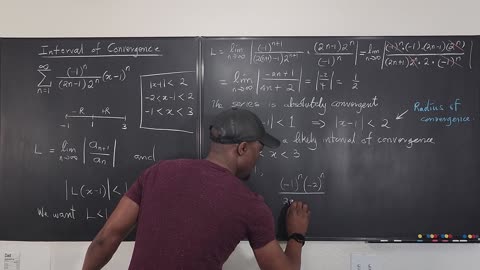 Interval of Convergence
∞ Σ n=1 (-1)^n / (2n-1) 2^n (x-1)^n
|x-1| < 2
-2 < x-1 < 2
-1 < x < 3
R R
-1 1 3
L = lim n→∞ |a_{n+1} / a_n| and
|L(x-1)| < 1
We want L<1
L = lim n→∞ | (-1)^{n+1} / (2(n+1)-1) 2^{n+1} · (2n-1) 2^n / (-1)^n | = lim n→∞
= lim n→∞ | -2n+1 / 4n+2 | = | = 1/2
The series is absolutely convergent
-1| < 1 ⇒ |x-1| < 2
Radius of
convergence.
a likely interval of convergence.
x < 3
(-1)^n (-2)^n